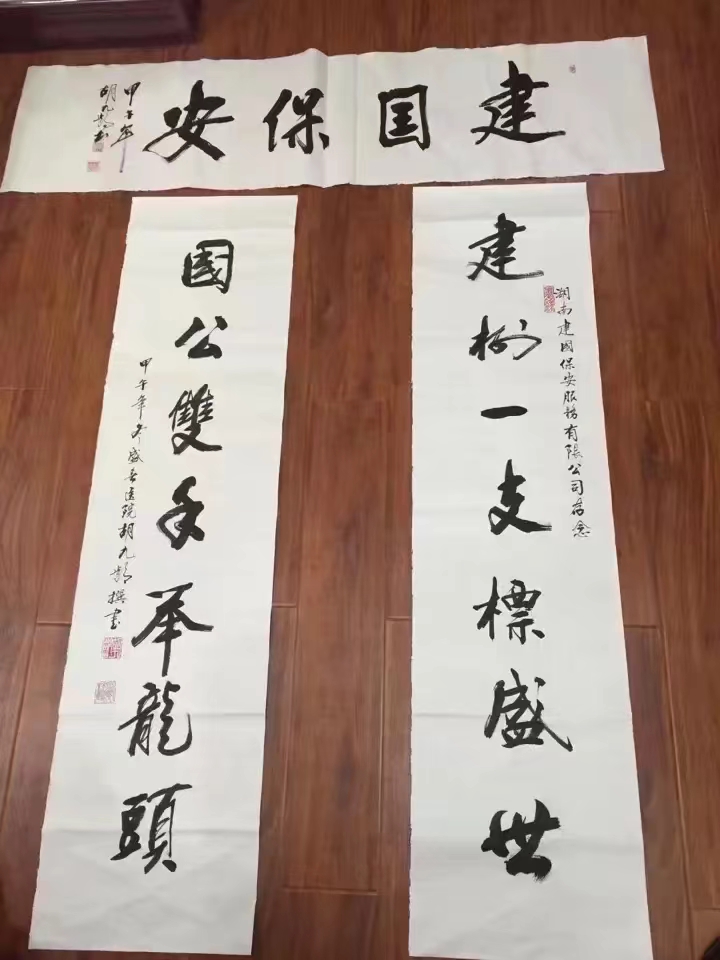 建囯保安
甲午年
胡九龄书
建树一支標盛世
湖南建國保安服务有限公司存念
國公雙手举龍頭
甲午年冬盛医院胡九龄撰书